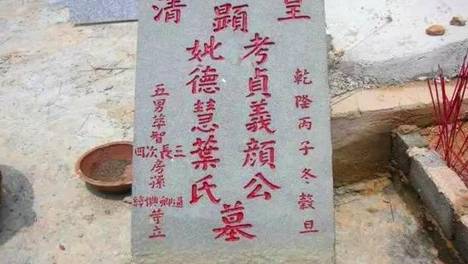 皇
清
顯
考貞義顏公
妣德慧葉氏
墓
乾隆丙子冬·穀旦
五男萃智
四次長三
房孫
等立